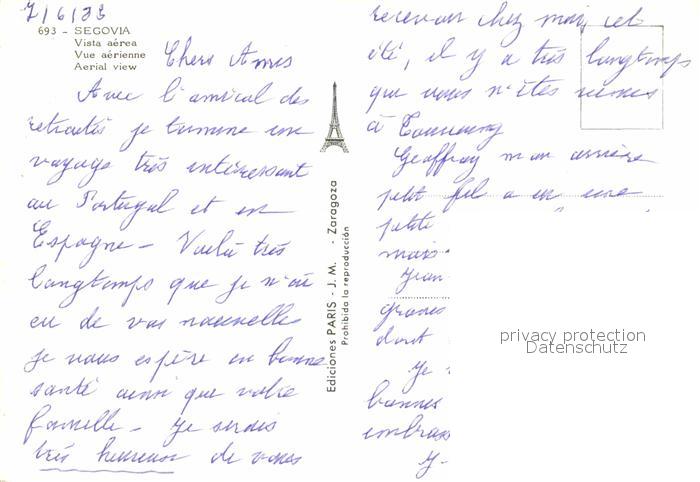 7/6/83
693 - SEGOVIA
Vista aérea
Vue aérienne
Aerial view
Chers Amis
Avec l'amical des
retraités je termine un
voyage très intéressant
au Portugal et en
Espagne - Voilà très
longtemps que je n'ai
eu de vos nouvelles
je vous espère en bonne
santé ainsi que votre
famille - Je serais
très heureux de vous
Ediciones PARIS - J. M. - Zaragoza
Prohibida la reproducción
recevoir chez moi, cet
été, il y a très longtemps
que vous n'êtes venus
à
Geoffray mon arrière
petit fil a eu une
petite
mais
Jean
grands
dont
Je
bonnes
embrass
J-
privacy protection
Datenschutz